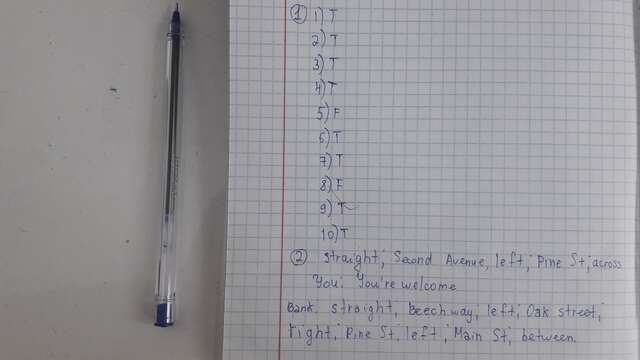 ① 1) T
2) T
3) T
4) T
5) F
6) T
7) T
8) F
9) T
10) T
② straight; Second Avenue, left; Pine St, across
You. You're welcome
Bank. straight, Beech way, left; Oak street;
right; Pine St, left, Main St, between.